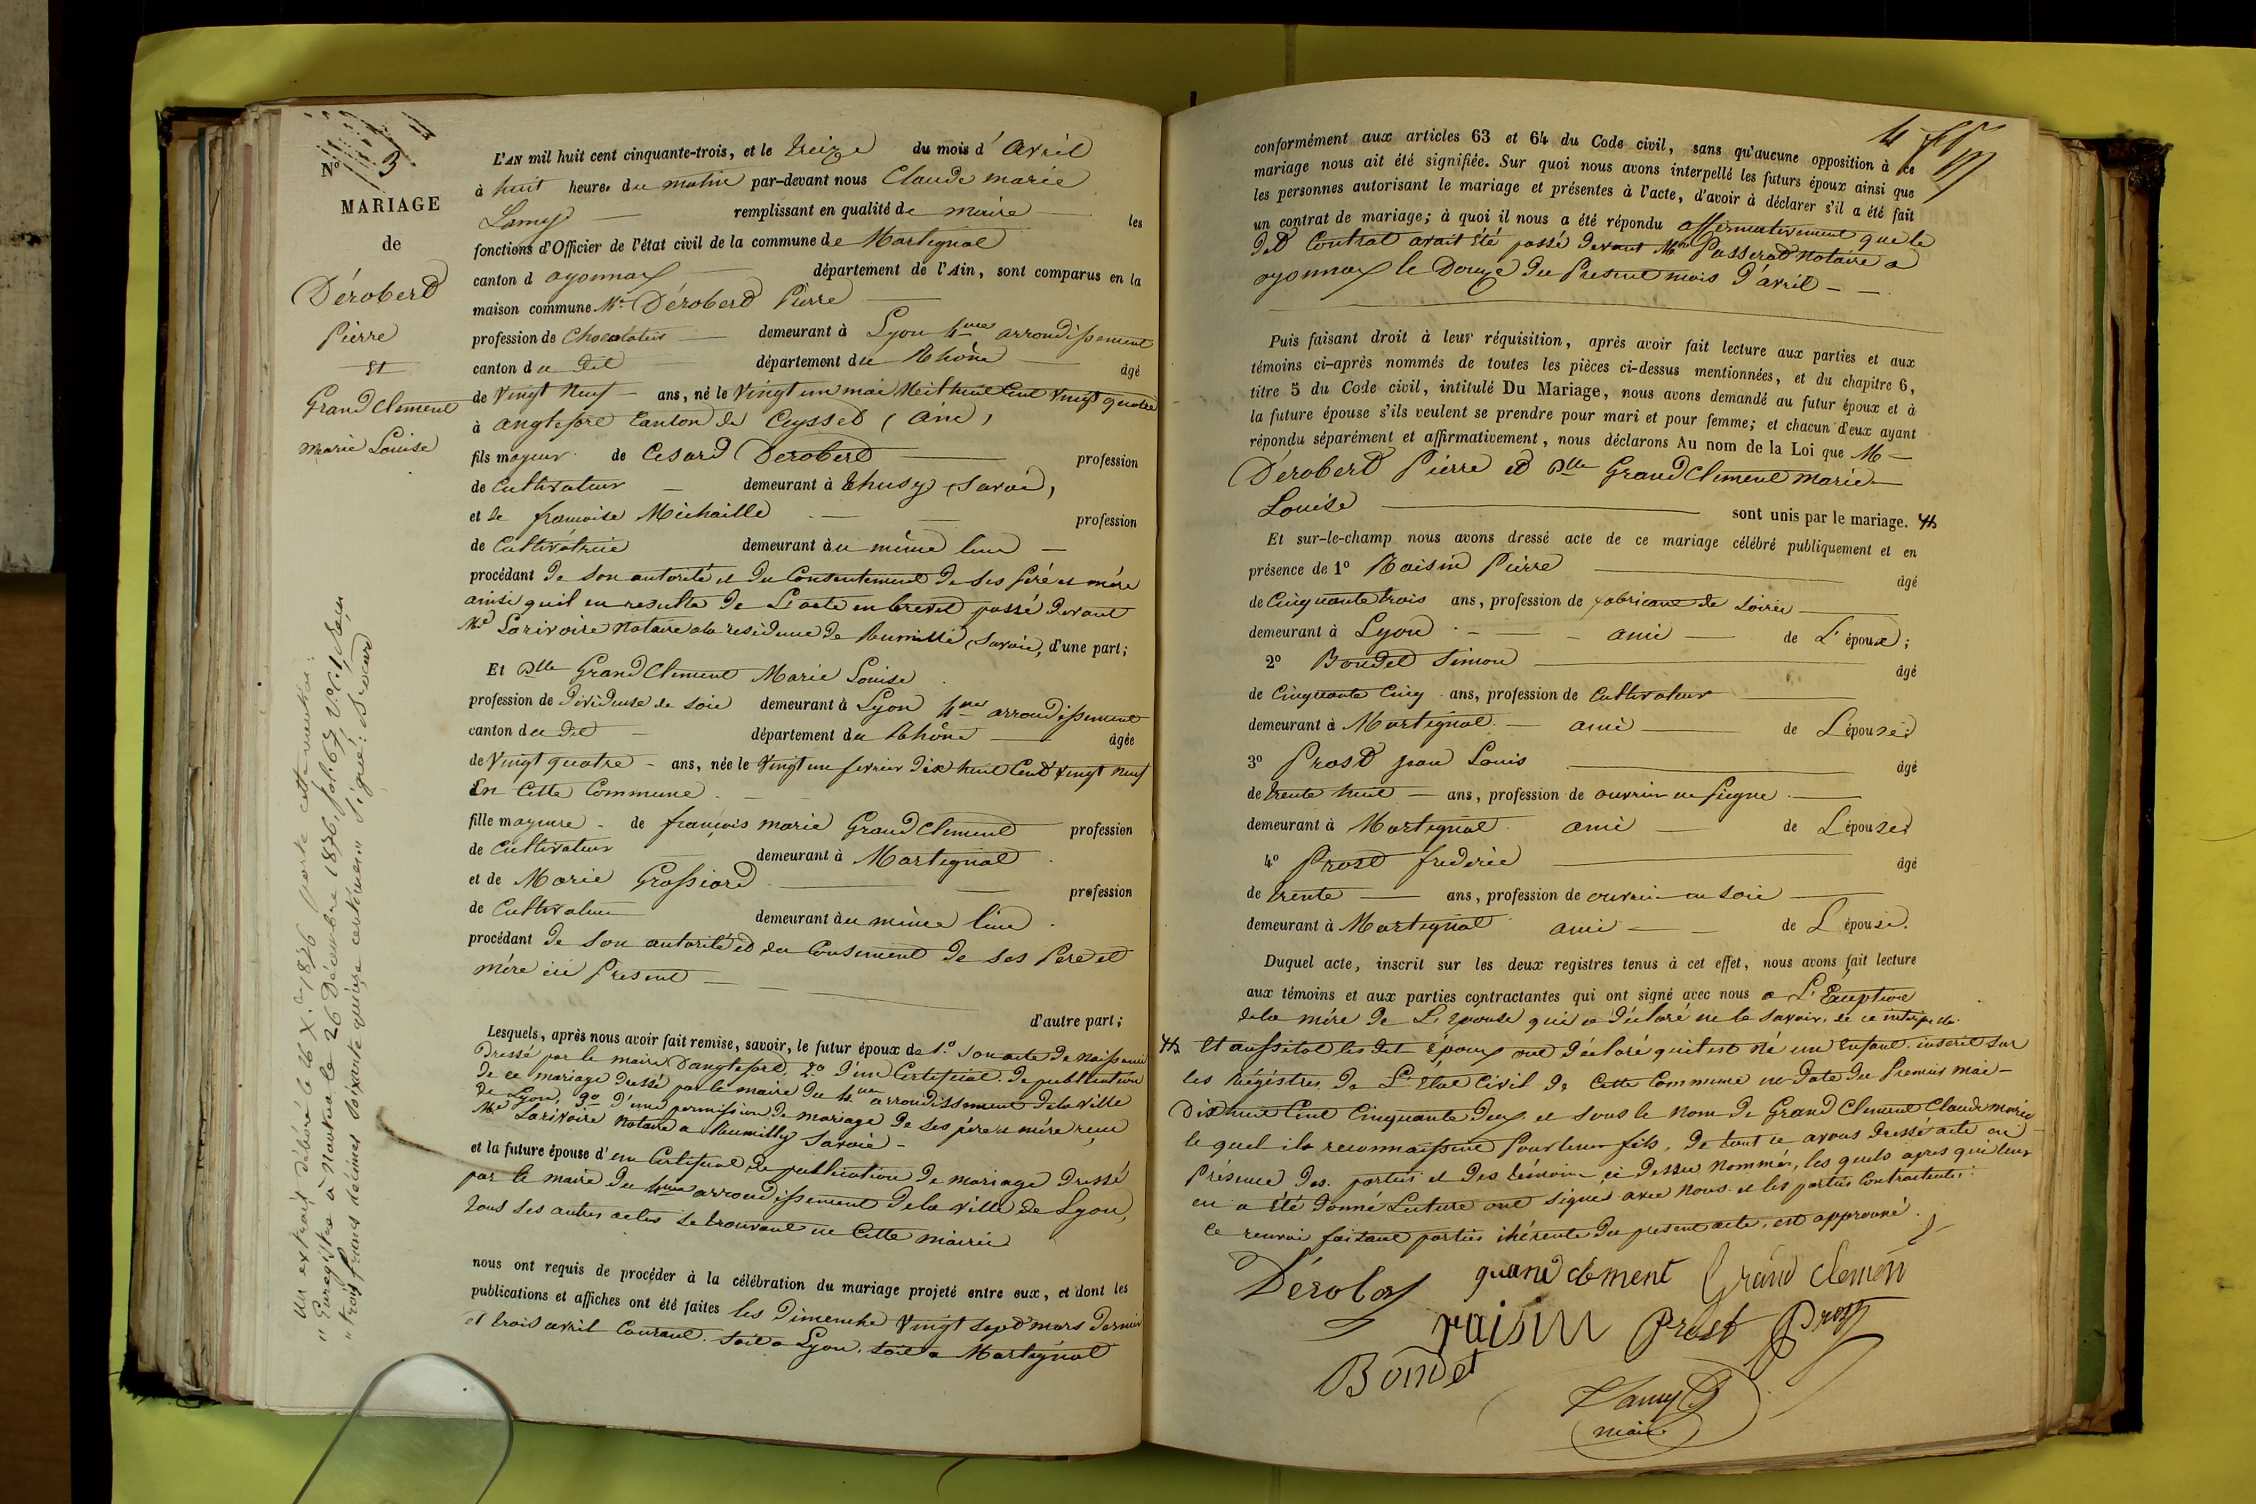 N° 3
MARIAGE
de
Dérobert
Pierre
et
Grand Clement
Marie Louise
un extrait délivré le 26 X.bre 1876 porte cette mention:
"Enregistré à Nantua le 26 Décembre 1876, fol. 67 V. C. 1, Reçu
"trois francs décimes soixante quinze centimes" Signé: Brocard
L'AN mil huit cent cinquante-trois, et le treize du mois d'Avril
à huit heures du matin par-devant nous Claude marie
Lamy remplissant en qualité de maire les
fonctions d'Officier de l'état civil de la commune de Martignat
canton d oyonnax département de l'Ain, sont comparus en la
maison commune Mr. Dérobert Pierre
profession de Chocolatier demeurant à Lyon 4me arrondissement
canton du dit département du Rhône âgé
de Vingt Neuf ans, né le Vingt un mai Mil huit Cent Vingt quatre
à anglefore Canton de Ceysset (Ain)
fils mayeur de Cesard Derobert profession
de Cultivateur demeurant à thusy (Savoie)
et de francoise Michaille profession
de Cultivatrice demeurant au même lieu
procédant de son autorité et du Consentement de ses père et mère
ainsi quil en resulte de L'acte en brevet passé devant
Me Larivoire Notaire a la residence de Rumilli (Savoie), d'une part;
Et Dlle Grand Clement Marie Louise
profession de dévideuse de soie demeurant à Lyon 4me arrondissement
canton du dit département du Rhône âgée
de Vingt quatre ans, née le Vingt un fevrier Dix huit Cent Vingt Neuf
En Cette Commune
fille mayeure de françois marie Grand Clement profession
de Cultivateur demeurant à Martignat
et de Marie Grossiord profession
de Cultivateur demeurant au même lieu
procédant de son autorité et du Consement de ses Pere et
mère ici Present
d'autre part;
Lesquels, après nous avoir fait remise, savoir, le futur époux de 1.° Son acte de Naissance
Dressé par le maire D'anglefort. 2.° d'un Certificat de publication
de ce mariage dressé par le maire du 4me arrondissement de la Ville
de Lyon, 3° d'une permission de mariage de ses père et mère reçue
Me Larivoire Notaire a Rumilly Savoie
et la future épouse d'un Certificat de publication de mariage dressé
par le maire du 4me arrondissement de la Ville de Lyon,
tous ses autres actes se trouvant en Cette mairie
nous ont requis de procéder à la célébration du mariage projeté entre eux, et dont les
publications et affiches ont été faites les Dimenche Vingt sept mars dernier
et trois avril Courant. soit a Lyon. soit a Martignat
conformément aux articles 63 et 64 du Code civil, sans qu'aucune opposition à ce
mariage nous ait été signifiée. Sur quoi nous avons interpellé les futurs époux ainsi que
les personnes autorisant le mariage et présentes à l'acte, d'avoir à déclarer s'il a été fait
un contrat de mariage; à quoi il nous a été répondu affirmativement que le
dit Contrat avait été passé devant Me Passerat Notaire a
oyonnax le Douze du Present mois d'avril
Puis faisant droit à leur réquisition, après avoir fait lecture aux parties et aux
témoins ci-après nommés de toutes les pièces ci-dessus mentionnées, et du chapitre 6,
titre 5 du Code civil, intitulé Du Mariage, nous avons demandé au futur époux et à
la future épouse s'ils veulent se prendre pour mari et pour femme; et chacun d'eux ayant
répondu séparément et affirmativement, nous déclarons Au nom de la Loi que M
Dérobert Pierre et Dlle Grand Clement Marie
Louise sont unis par le mariage.
Et sur-le-champ nous avons dressé acte de ce mariage célébré publiquement et en
présence de 1° Raisin Pierre âgé
de Cinquante trois ans, profession de fabricant de Soirie
demeurant à Lyon ami de L'époux;
2° Boudet Simon âgé
de Cinquante Cinq ans, profession de Cultivateur
demeurant à Martignat ami de L'épouse;
3° Prost jean Louis âgé
de trente huit ans, profession de ouvrier en peigne
demeurant à Martignat ami de L'épouse;
4° Prost frederic âgé
de trente ans, profession de ouvrier en soie
demeurant à Martignat ami de L'épouse.
Duquel acte, inscrit sur les deux registres tenus à cet effet, nous avons fait lecture
aux témoins et aux parties contractantes qui ont signé avec nous a L'Exeption
de la mère de L'épouse qui a déclaré ne le savoir, de ce interpellé
Et aussitot les dit Epoux ont déclaré quil est Né un Enfant inscrit sur
les Régistres de L'Etat Civil de Cette Commune en date du Premier mai
Dix huit Cent Cinquante deux et sous le Nom de Grand Clement Claude marie
le quel ils reconnaissent Pour leur fils, de tout ce avons dressé acte en
Présence des parties et des témoins ci dessu Nommés, les quels apres que leur
en a été donné Lecture ont signer avec Nous et les parties Contractentes
ce renvoi faisant parties ihérente du present acte, est approuvé.
Dérobert grand clement Grand Clement
raisin Prost Prost
Boudet
Lamy
maire